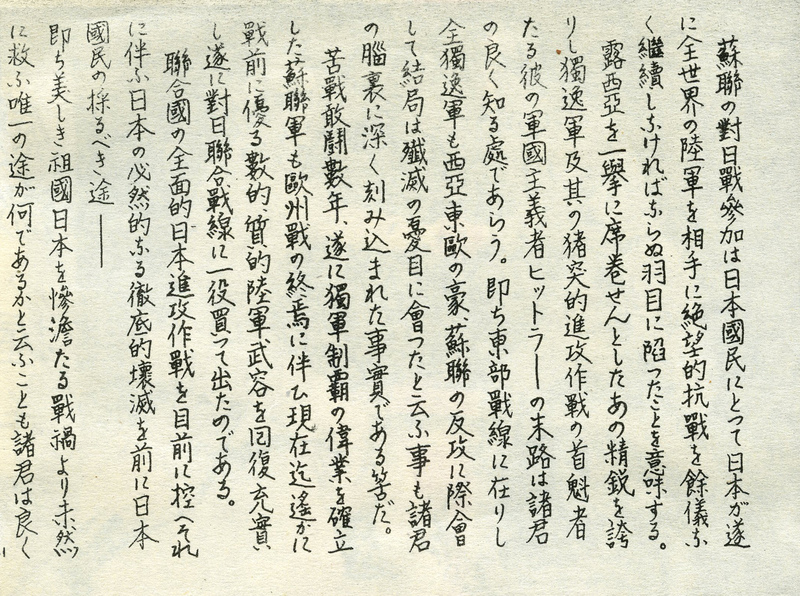 蘇聯の對日戰參加は日本國民にとつて日本が遂
に全世界の陸軍を相手に絶望的抗戰を餘儀な
く繼續しなければならぬ羽目に陷つたことを意味する。
露西亞を一擧に席巻せんとしたあの精鋭を誇
りし獨逸軍及其の猪突的進攻作戰の首魁者
たる彼の軍國主義者ヒットラーの末路は諸君
の良く知る處であらう。即ち東部戰線に在りし
全獨逸軍も西亞東歐の豪、蘇聯の反攻に際會
して結局は殲滅の憂目に會つたと云ふ事も諸君
の腦裏に深く刻み込まれた事實である筈だ。
苦戰敢鬪數年、遂に獨軍制覇の偉業を確立
した蘇聯軍も歐州戰の終焉に伴ひ現在迄遙かに
戰前に優る數的質的陸軍武容を囘復充實
し遂に對日聯合戰線に一役買つて出たのである。
聯合國の全面的日本進攻作戰を目前に控へそれ
に伴ふ日本の必然的なる徹底的壞滅を前に日本
國民の採るべき途——
即ち美しき祖國日本を慘澹たる戰禍より未然
に救ふ唯一の途が何であるかと云ふことも諸君は良く